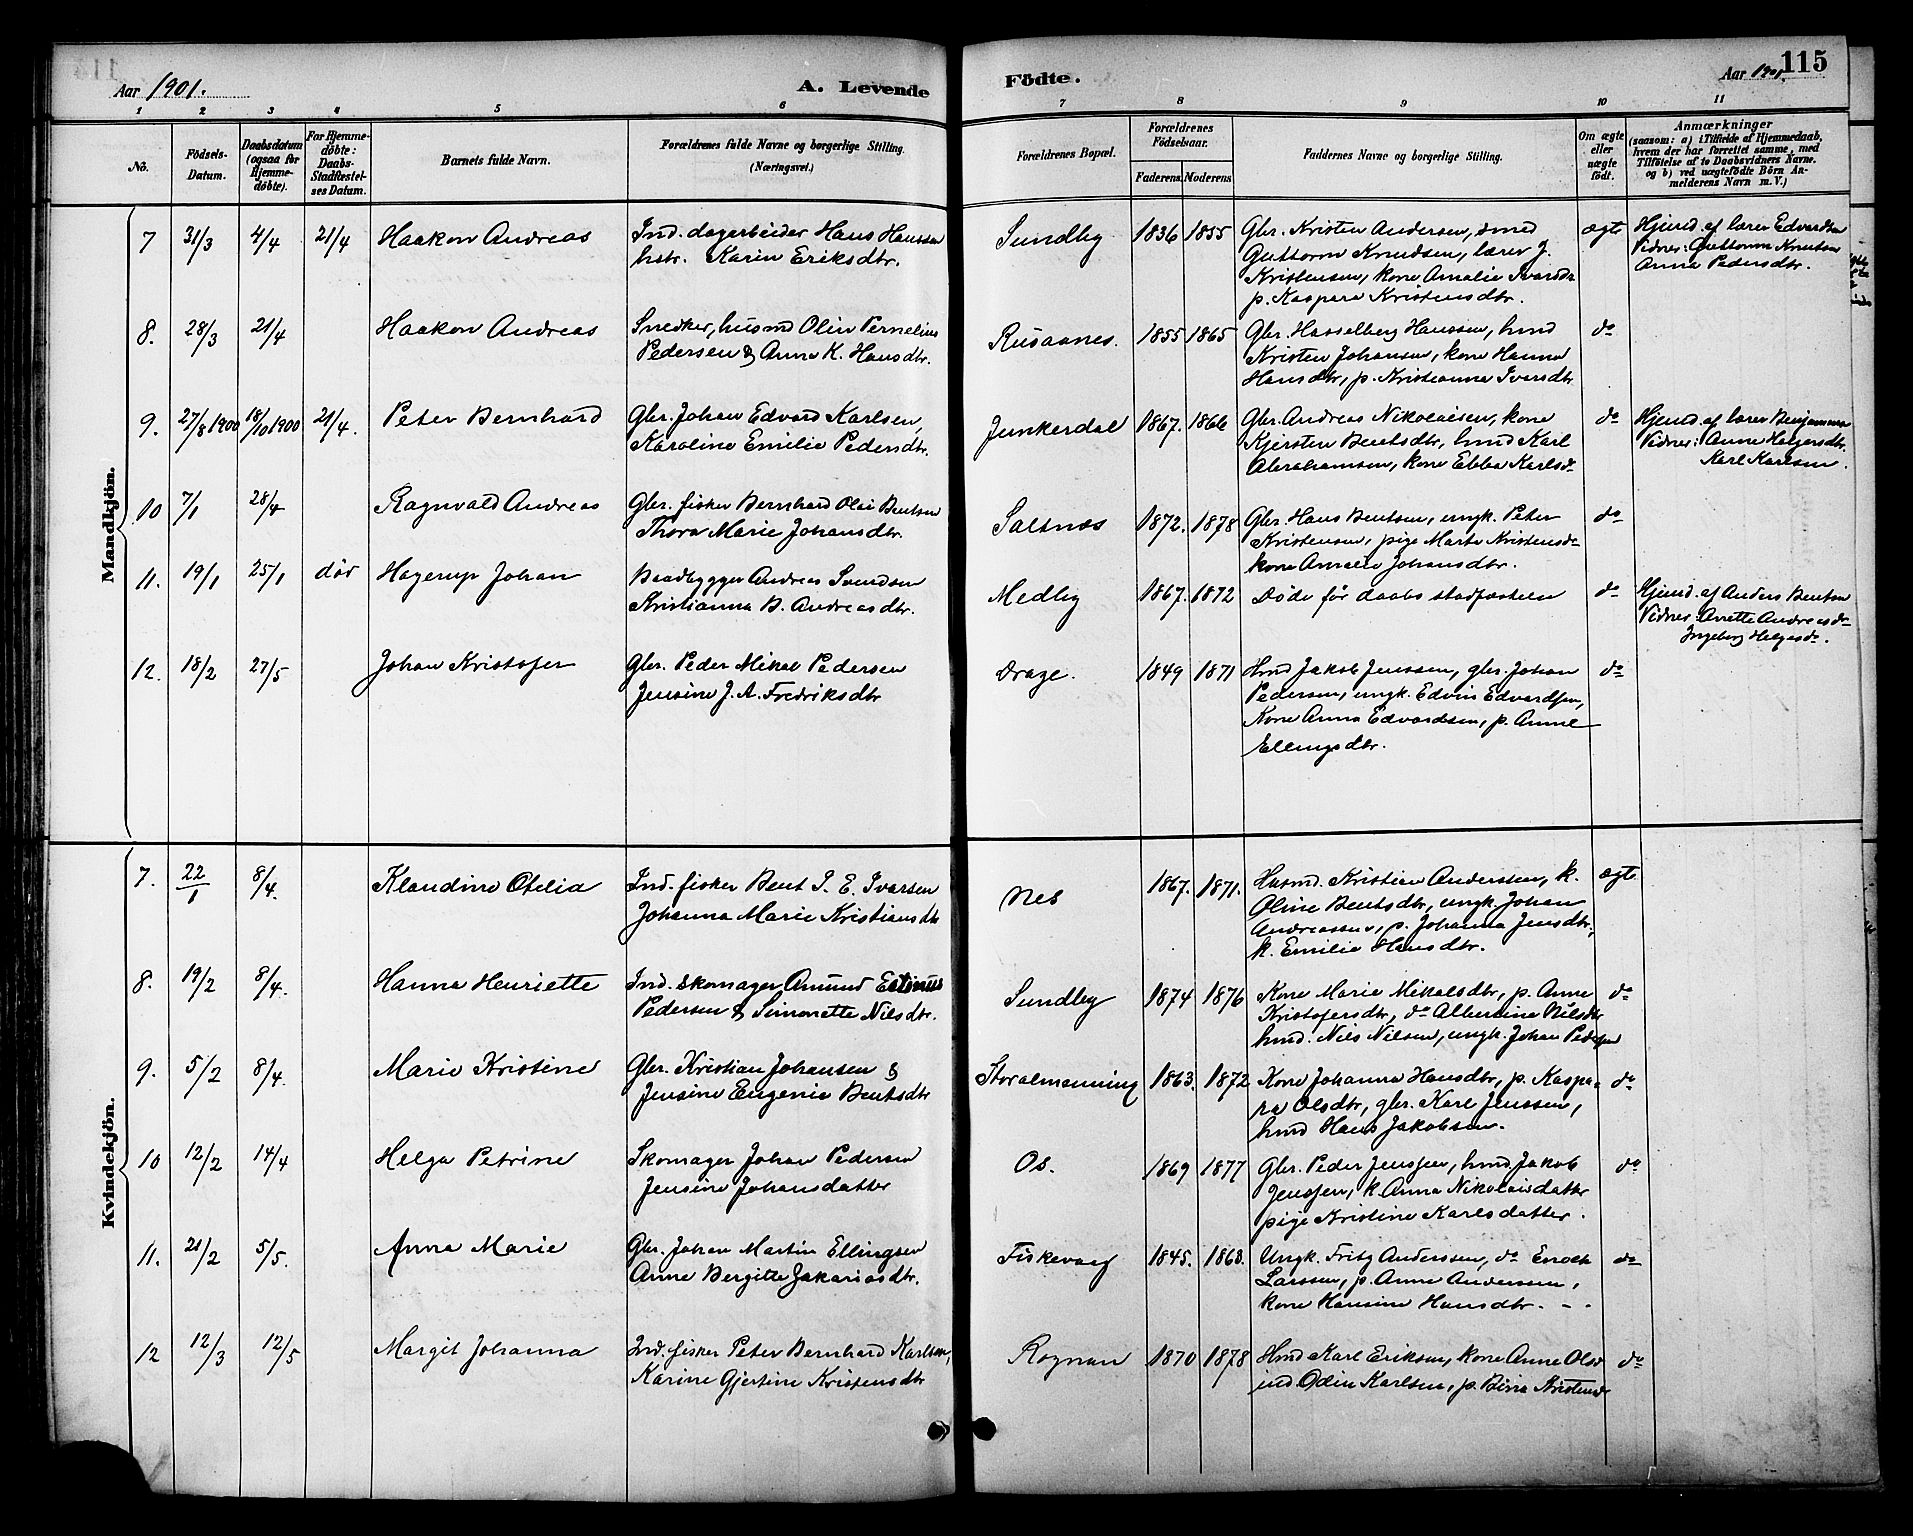 Aar 1901.
A. Levende
Födte.
Aar 1901.
115
1 2 3 4 5 6 7 8 9 10 11
No.
Födsels-Datum.
Daabsdatum (ogsaa for Hjemme-döbte).
For Hjemme-döbte: Daabs-Stadfæstel-ses Datum.
Barnets fulde Navn.
Forældrenes fulde Navne og borgerlige Stilling.
(Næringsvei.)
Forældrenes Bopæl.
Forældrenes Födselsaar.
Faderens Moderens
Faddernes Navne og borgerlige Stilling.
Om ægte eller uægte födt.
Anmærkninger
(saasom: a) i Tilfælde af Hjemmedaab, hvem der har forrettet samme, med Tilföielse af to Daabsvidners Navne. og b) ved uægtefödte Börn An-melderens Navn m. V.)
Mandkjön.
7 31/3 4/4 21/4 Haakon Andreas Ind. dagarbeider Hans Hanssen Sundby 1836 1855 Gbr. Kristen Andersen, smed ægte Hjemd. af lærer Edvardsen
hstr. Karin Eriksdtr. Guttorm Knudsen, lærer J. Vidner: Guttorm Knutsen
Kristensen, kone Amalie Ivarsdr Anna Pedersdtr.
p. Kaspara Kristensdtr.
8. 28/3 21/4 Haakon Andreas Snedker, husmd Olin Pernelius Rusaanes. 1855 1865 Gbr. Hasselberg Hanssen, hmd do
Pedersen & Anne K. Hansdtr. Kristen Johansen, kone Hanna
Hansdtr, p. Kristianna Ivarsdtr
9. 27/8 1900 18/10 1900 21/4. Peter Bernhard Gbr. Johan Edvard Karlsen, Junkerdal 1867. 1866 Gbr. Andreas Nikolaisen, kone do Hjemd. af lærer Benjaminsen
Karoline Emilie Pedersdtr. Kjersten Bentsdtr, hmd Karl Vidner: Anne Holgersdtr.
Abrahamsen, kone Ebba Karlsdr Karl Karlsen.
10 7/1 28/4 Ragnvald Andreas Gbr. fisker Bernhard Olai Bentsen Saltnæs 1872. 1878 Gbr. Hans Bentsen, ungk. Peter do
Thora Marie Johansdtr. Kristensen, pige Marte Kristensdr
kone Amalie Johansdtr.
11. 19/1 25/1 død Hagerup Johan Baadbygger Andreas Svendsen Medby 1867. 1872 Døde før daabs stadfæstelse do Hjemd. af Anders Bentsen
Kristianna B. Andreasdtr. Vidner: Anette Andreasdr
Ingeborg Helgesdr.
12. 18/2 27/5 Johan Kristofer Gbr. Peder Mikal Pedersen Drage. 1849 1871 Hmd Jakob Jenssen, gbr. Johan do
Jensine J. A. Fredriksdtr Pedersen, ungk. Edvin Edvardsen,
Kone Anna Edvardsen, p. Anne
Ellingsdtr.
Kvindekjön.
7. 22/1 8/4. Klaudine Otelia Ind. fisker Bent I. E. Ivarsen Nes 1867. 1871. Husmd. Kristian Anderssen, k. ægte
Johanna Marie Kristiansdtr Oline Bentsdtr, ungk. Johan
Andreassen, p. Johanna Jensdtr,
k. Emilie Hansdtr.
8. 19/2 8/4. Hanna Henriette Ind. skomager Amund Estinus Sundby 1874 1876 Kone Marie Mikalsdtr, p. Anne do
Pedersen & Simonette Nilsdtr. Kristofersdtr, do Albertine Nilsdtr
hmd. Nils Nilsen, ungk. Johan Pedersen
9. 5/2 8/4. Marie Kristine Gbr. Kristian Johansen & Storalmenning 1863. 1872 Kone Johanna Hansdtr, p. Kaspa- do
Jensine Eugenie Bentsdtr ra Olsdtr, gbr. Karl Jenssen,
hmd Hans Jakobsen.
10 12/2 14/4 Helga Petrine Skomager Johan Pedersen Os. 1869 1877 Gbr. Peder Jenssen, hmd. Jakob do
Jensine Johansdatter Jenssen, k. Anna Nikolaisdatter
pige Kristine Karlsdatter.
11. 21/2 5/5. Anna Marie Gbr. Johan Martin Ellingsen Fiskevaag 1845. 1863. Ungk. Fritz Anderssen, do Enoch do
Anne Bergitte Jakariasdtr. Larssen, p. Anne Andersen,
kone Hansine Hansdtr. - -
12 12/3 12/5 Margit Johanna Ind. fisker Peter Bernhard Karlsen, Rognan 1870 1878 Hmd Karl Eriksen, kone Anne Olsd do
Karine Gjertine Kristensdtr ind. Odin Karlsen, p. Biria Kristensdr